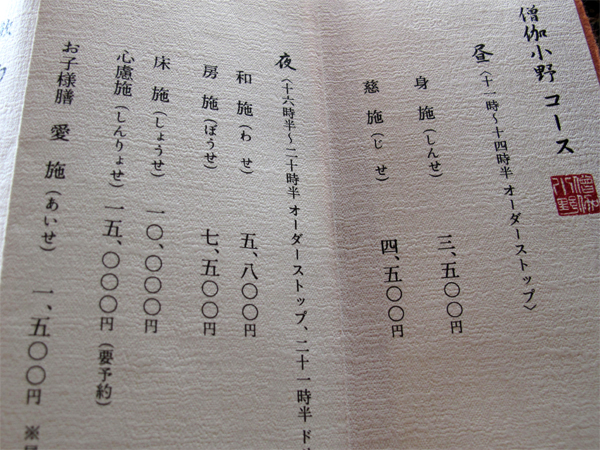 僧伽小野 コース
僧伽小野
昼〈十一時〜十四時半 オーダーストップ〉
身 施（しんせ） 三、五〇〇円
慈 施（じ せ） 四、五〇〇円
夜〈十六時半〜二十時半 オーダーストップ、二十一時半 ド
和 施（わ せ） 五、八〇〇円
房 施（ぼうせ） 七、五〇〇円
床 施（しょうせ） 一〇、〇〇〇円
心慮施（しんりょせ）一五、〇〇〇円（要予約）
お子様膳 愛 施（あいせ） 一、五〇〇円 ※